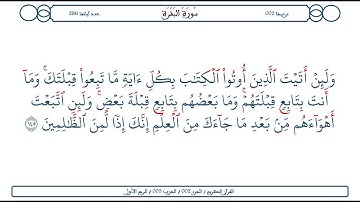 ترتيبها 002
سُورَةُ البَقَرَةِ
عدد آياتها 286
وَلَئِنْ أَتَيْتَ الَّذِينَ أُوتُوا الْكِتَابَ بِكُلِّ ءَايَةٍ مَّا تَبِعُوا قِبْلَتَكَ ۚ وَمَآ
أَنتَ بِتَابِعٍ قِبْلَتَهُمْ ۚ وَمَا بَعْضُهُم بِتَابِعٍ قِبْلَةَ بَعْضٍ ۚ وَلَئِنِ اتَّبَعْتَ
أَهْوَآءَهُم مِّنۢ بَعْدِ مَا جَآءَكَ مِنَ الْعِلْمِ ۙ إِنَّكَ إِذًا لَّمِنَ الظَّالِمِينَ ﴿١٤٥﴾
القرآن الكريم / الجزء 002 / الحزب 003 / الربع الأول